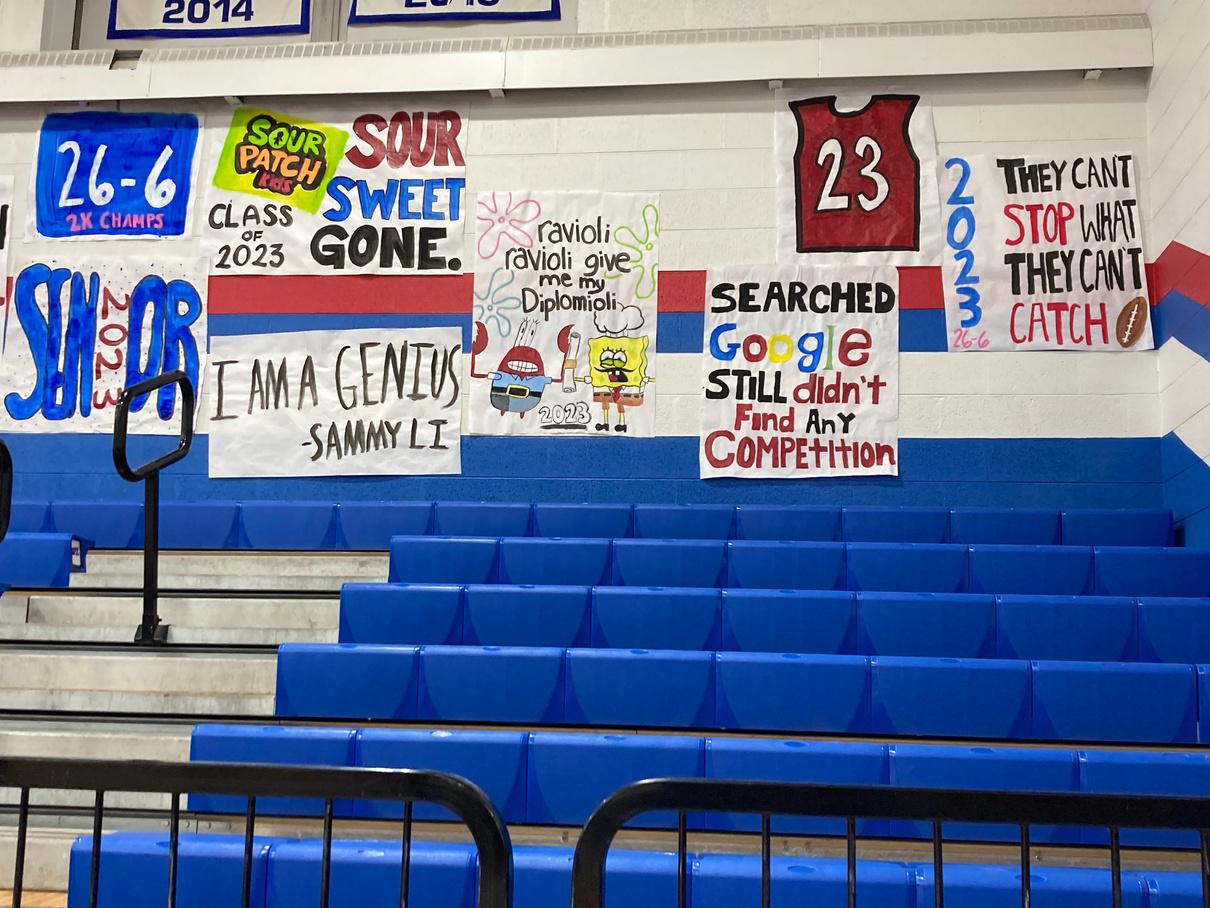 2014
26-6
2K CHAMPS
SENIOR
2023
SOUR
PATCH
Kids
SOUR
SWEET
GONE.
CLASS
OF
2023
I AM A GENIUS
-SAMMY LI
ravioli
ravioli give
me my
Diplomioli
2023
23
SEARCHED
Google
STILL dIdn't
Find Any
COMPETItIon
2023
26-6
THEY CAN'T
STOP WHAT
THEY CAN'T
CATCH